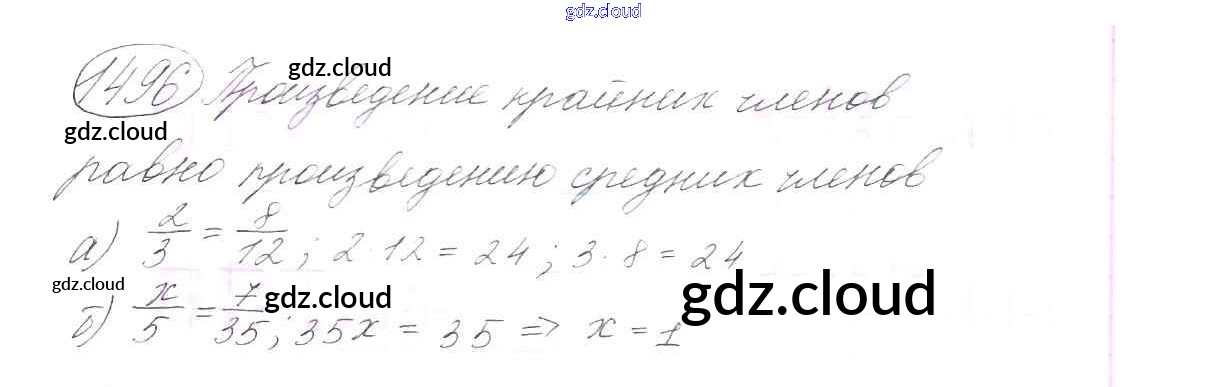 gdz.cloud
1496 Произведение крайних членов
gdz.cloud
gdz.cloud
равно произведению средних членов
а) 2/3 = 8/12; 2·12 = 24; 3·8 = 24
gdz.cloud
gdz.cloud
gdz.cloud
б) x/5 = 7/35; 35x = 35 => x = 1